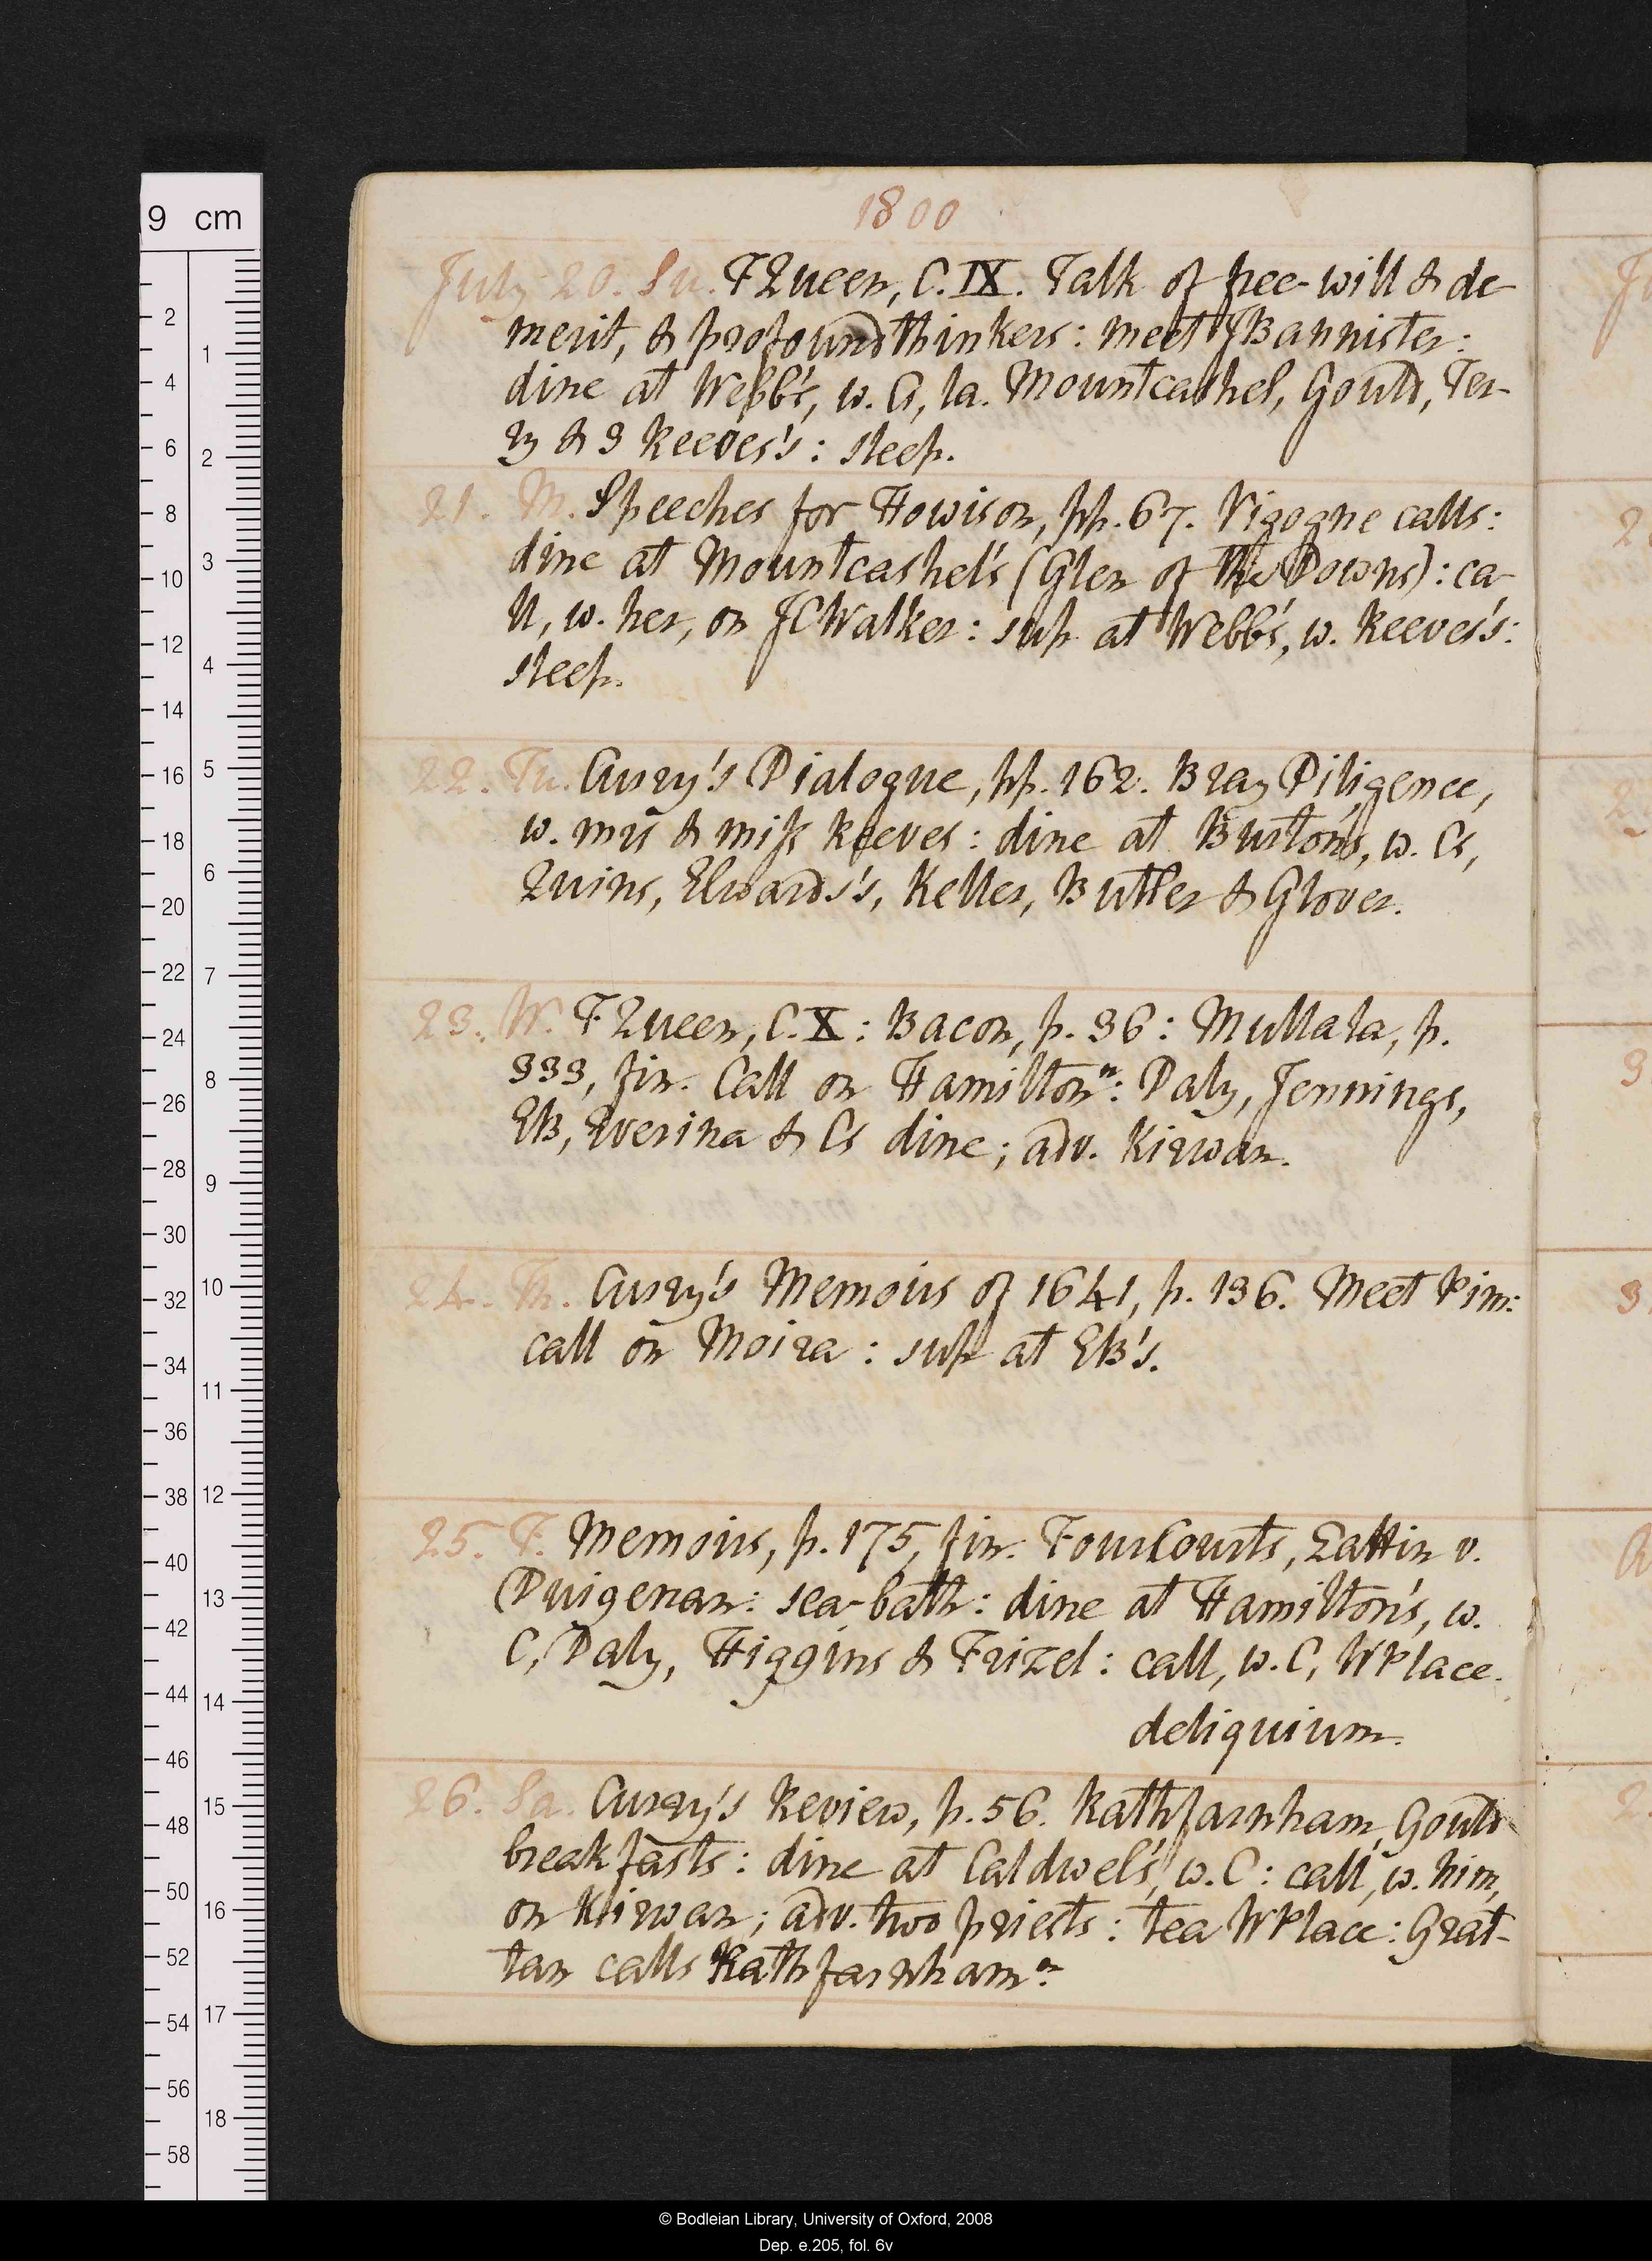 1800
July 20. Su. FQueen, C. IX. Talk of free-will & de-
merit, & profound thinkers: meet JBannister:
dine at Webb's, w. C, la. Mountcashel, Gould, Ter-
ry & 3 Reeves's: sleep.
21. M. Speeches for Howison, pp. 67. Vigogne calls:
dine at Mountcashel's (Glen of the Downs): ca-
ll, w. her, on JCWalker: sup at Webb's, w. Reeves's:
sleep.
22. Tu. Curry's Dialogue, pp. 162. Bray Diligence,
w. mrs & miss Reeves: dine at Burton's, w. Cs,
Quins, Edwards's, Keller, Butler & Glover.
23. W. FQueen, C. X: Bacon, p. 36: Mullala, p.
333, fin. Call on Hamilton n: Daly, Jennings,
EB, Everina & Cs dine; adv. Kirwan.
24. Th. Curry's Memoirs of 1641, p. 136. Meet Pim:
call on Moira: sup at EB's.
25. F. Memoirs, p. 175, fin. Four Courts, Lattin v.
Duigenan: sea-bath: dine at Hamilton's, w.
C, Daly, Higgins & Frizel: call, w. C, WPlace.
deliquium.
26. Sa. Curry's Review, p. 56. Rathfarnham, Gould
breakfasts: dine at Caldwel's, w. C: call, w. him,
on Kirwan; adv. two priests: tea WPlace: Grat-
tan calls Rathfarnham n.
9 cm
2
4
6
8
10
12
14
16
18
20
22
24
26
28
30
32
34
36
38
40
42
44
46
48
50
52
54
56
58
1
2
3
4
5
6
7
8
9
10
11
12
13
14
15
16
17
18
© Bodleian Library, University of Oxford, 2008
Dep. e.205, fol. 6v